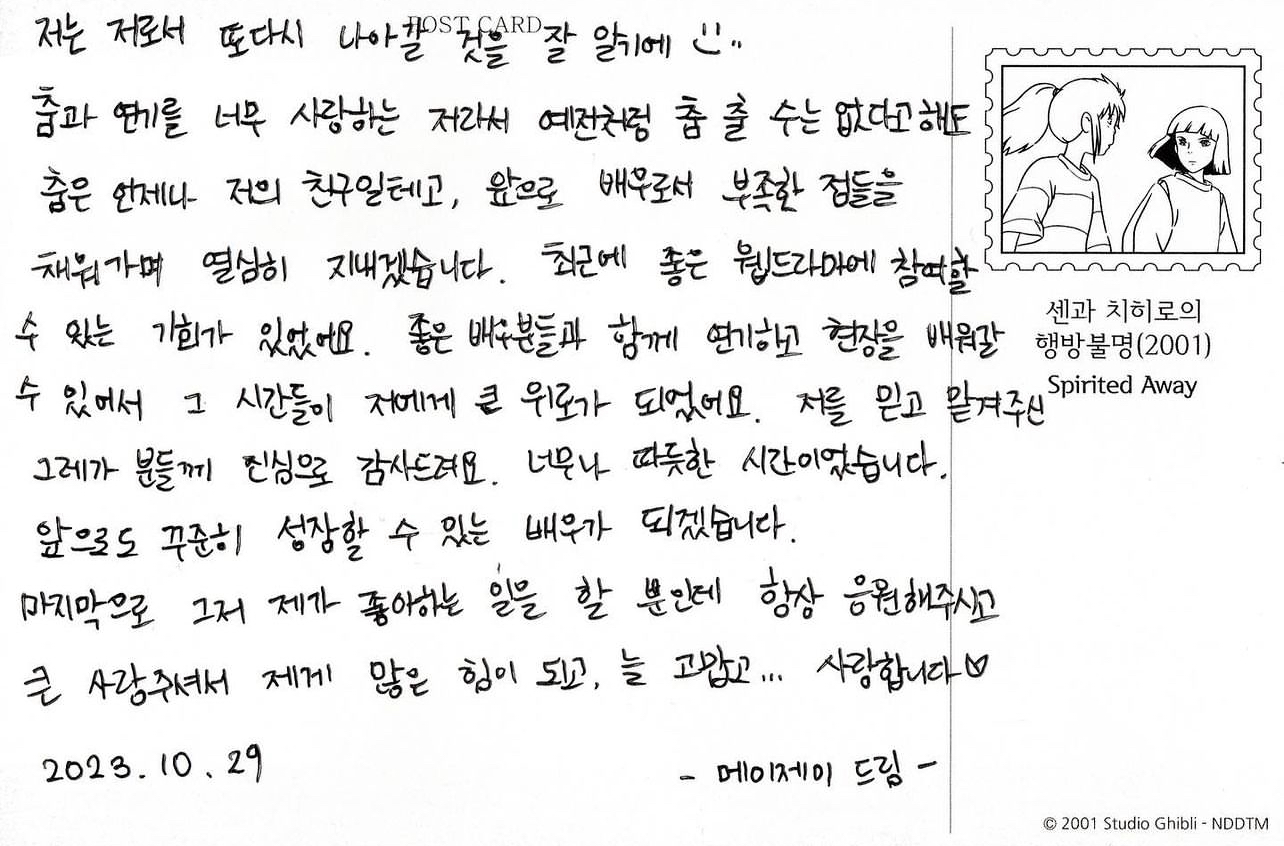 POST CARD
저는 저로서 또다시 나아갈 것을 잘 알기에
춤과 연기를 너무 사랑하는 저라서 예전처럼 춤 출 수는 없다고 해도
춤은 언제나 저의 친구일테고, 앞으로 배우로서 부족한 점들을
채워가며 열심히 지내겠습니다. 최근에 좋은 웹드라마에 참여할
수 있는 기회가 있었어요. 좋은 배우분들과 함께 연기하고 현장을 배워갈
수 있어서 그 시간들이 저에게 큰 위로가 되었어요. 저를 믿고 맡겨주신
그레가 분들께 진심으로 감사드려요. 너무나 따듯한 시간이었습니다.
앞으로도 꾸준히 성장할 수 있는 배우가 되겠습니다.
마지막으로 그저 제가 좋아하는 일을 할 뿐인데 항상 응원해주시고
큰 사랑주셔서 제게 많은 힘이 되고, 늘 고맙고... 사랑합니다♡
2023.10.29
- 메이제이 드림 -
센과 치히로의
행방불명(2001)
Spirited Away
© 2001 Studio Ghibli - NDDTM